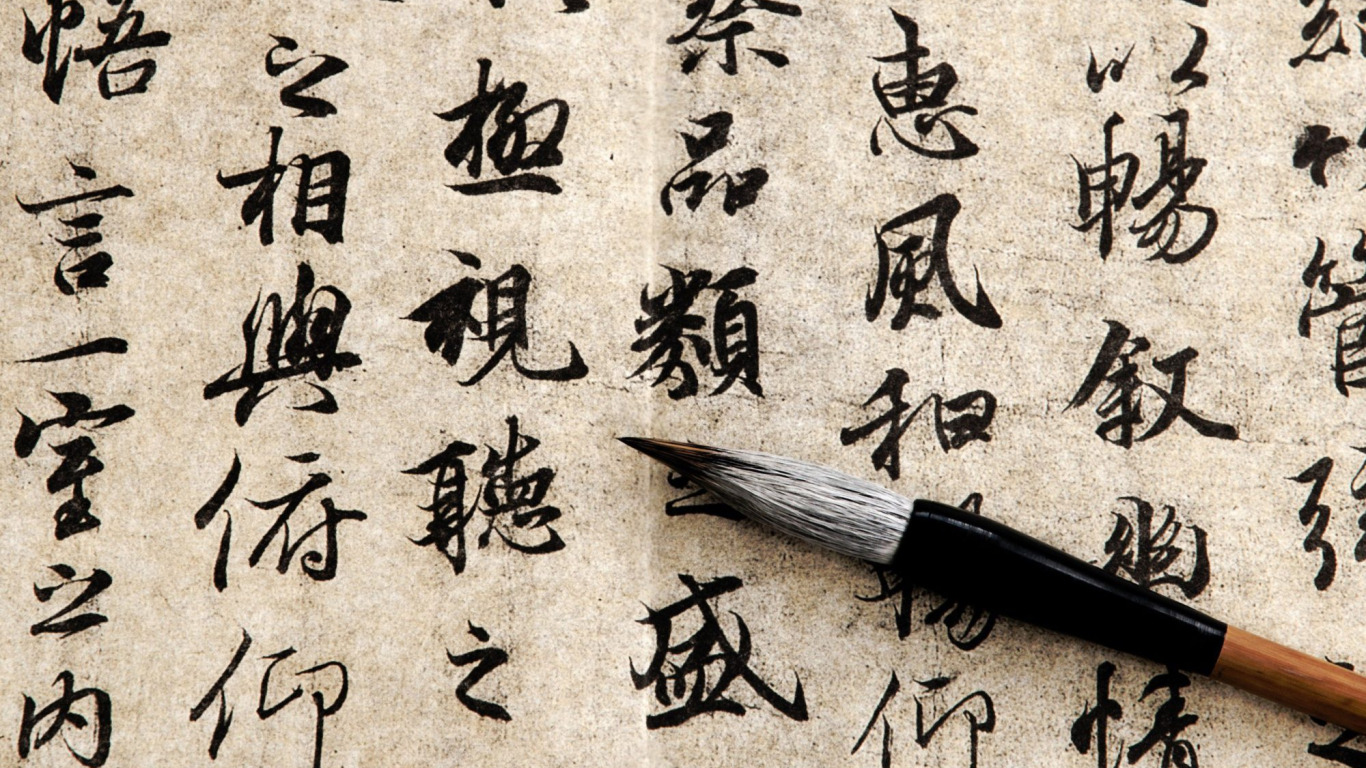 管弦
以暢叙幽情
惠風和暢仰
察品類之盛
極視聽之
之相與俯仰
悟言一室之内